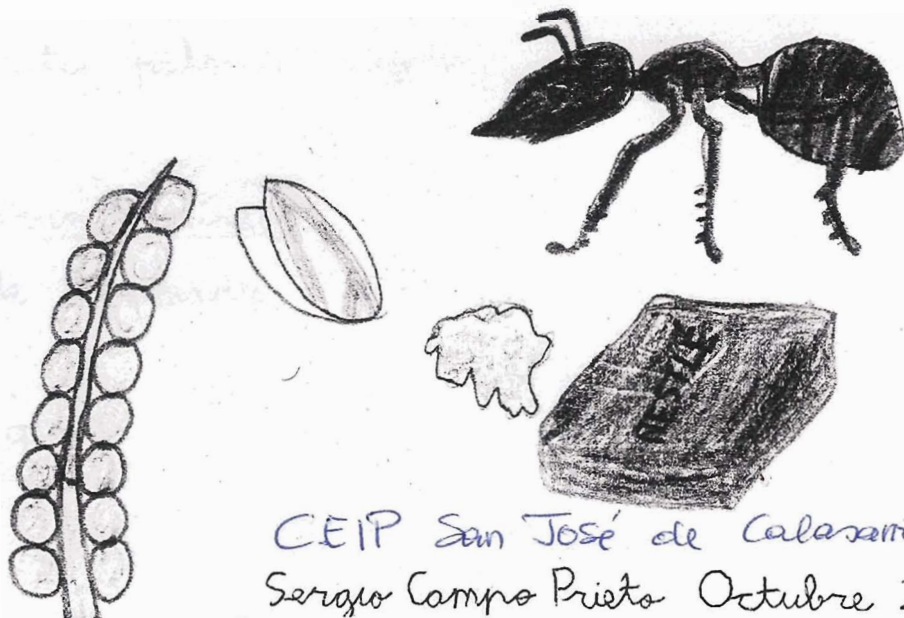 NESTLE
CEIP San José de Calasan
Sergio Campo Prieto Octubre